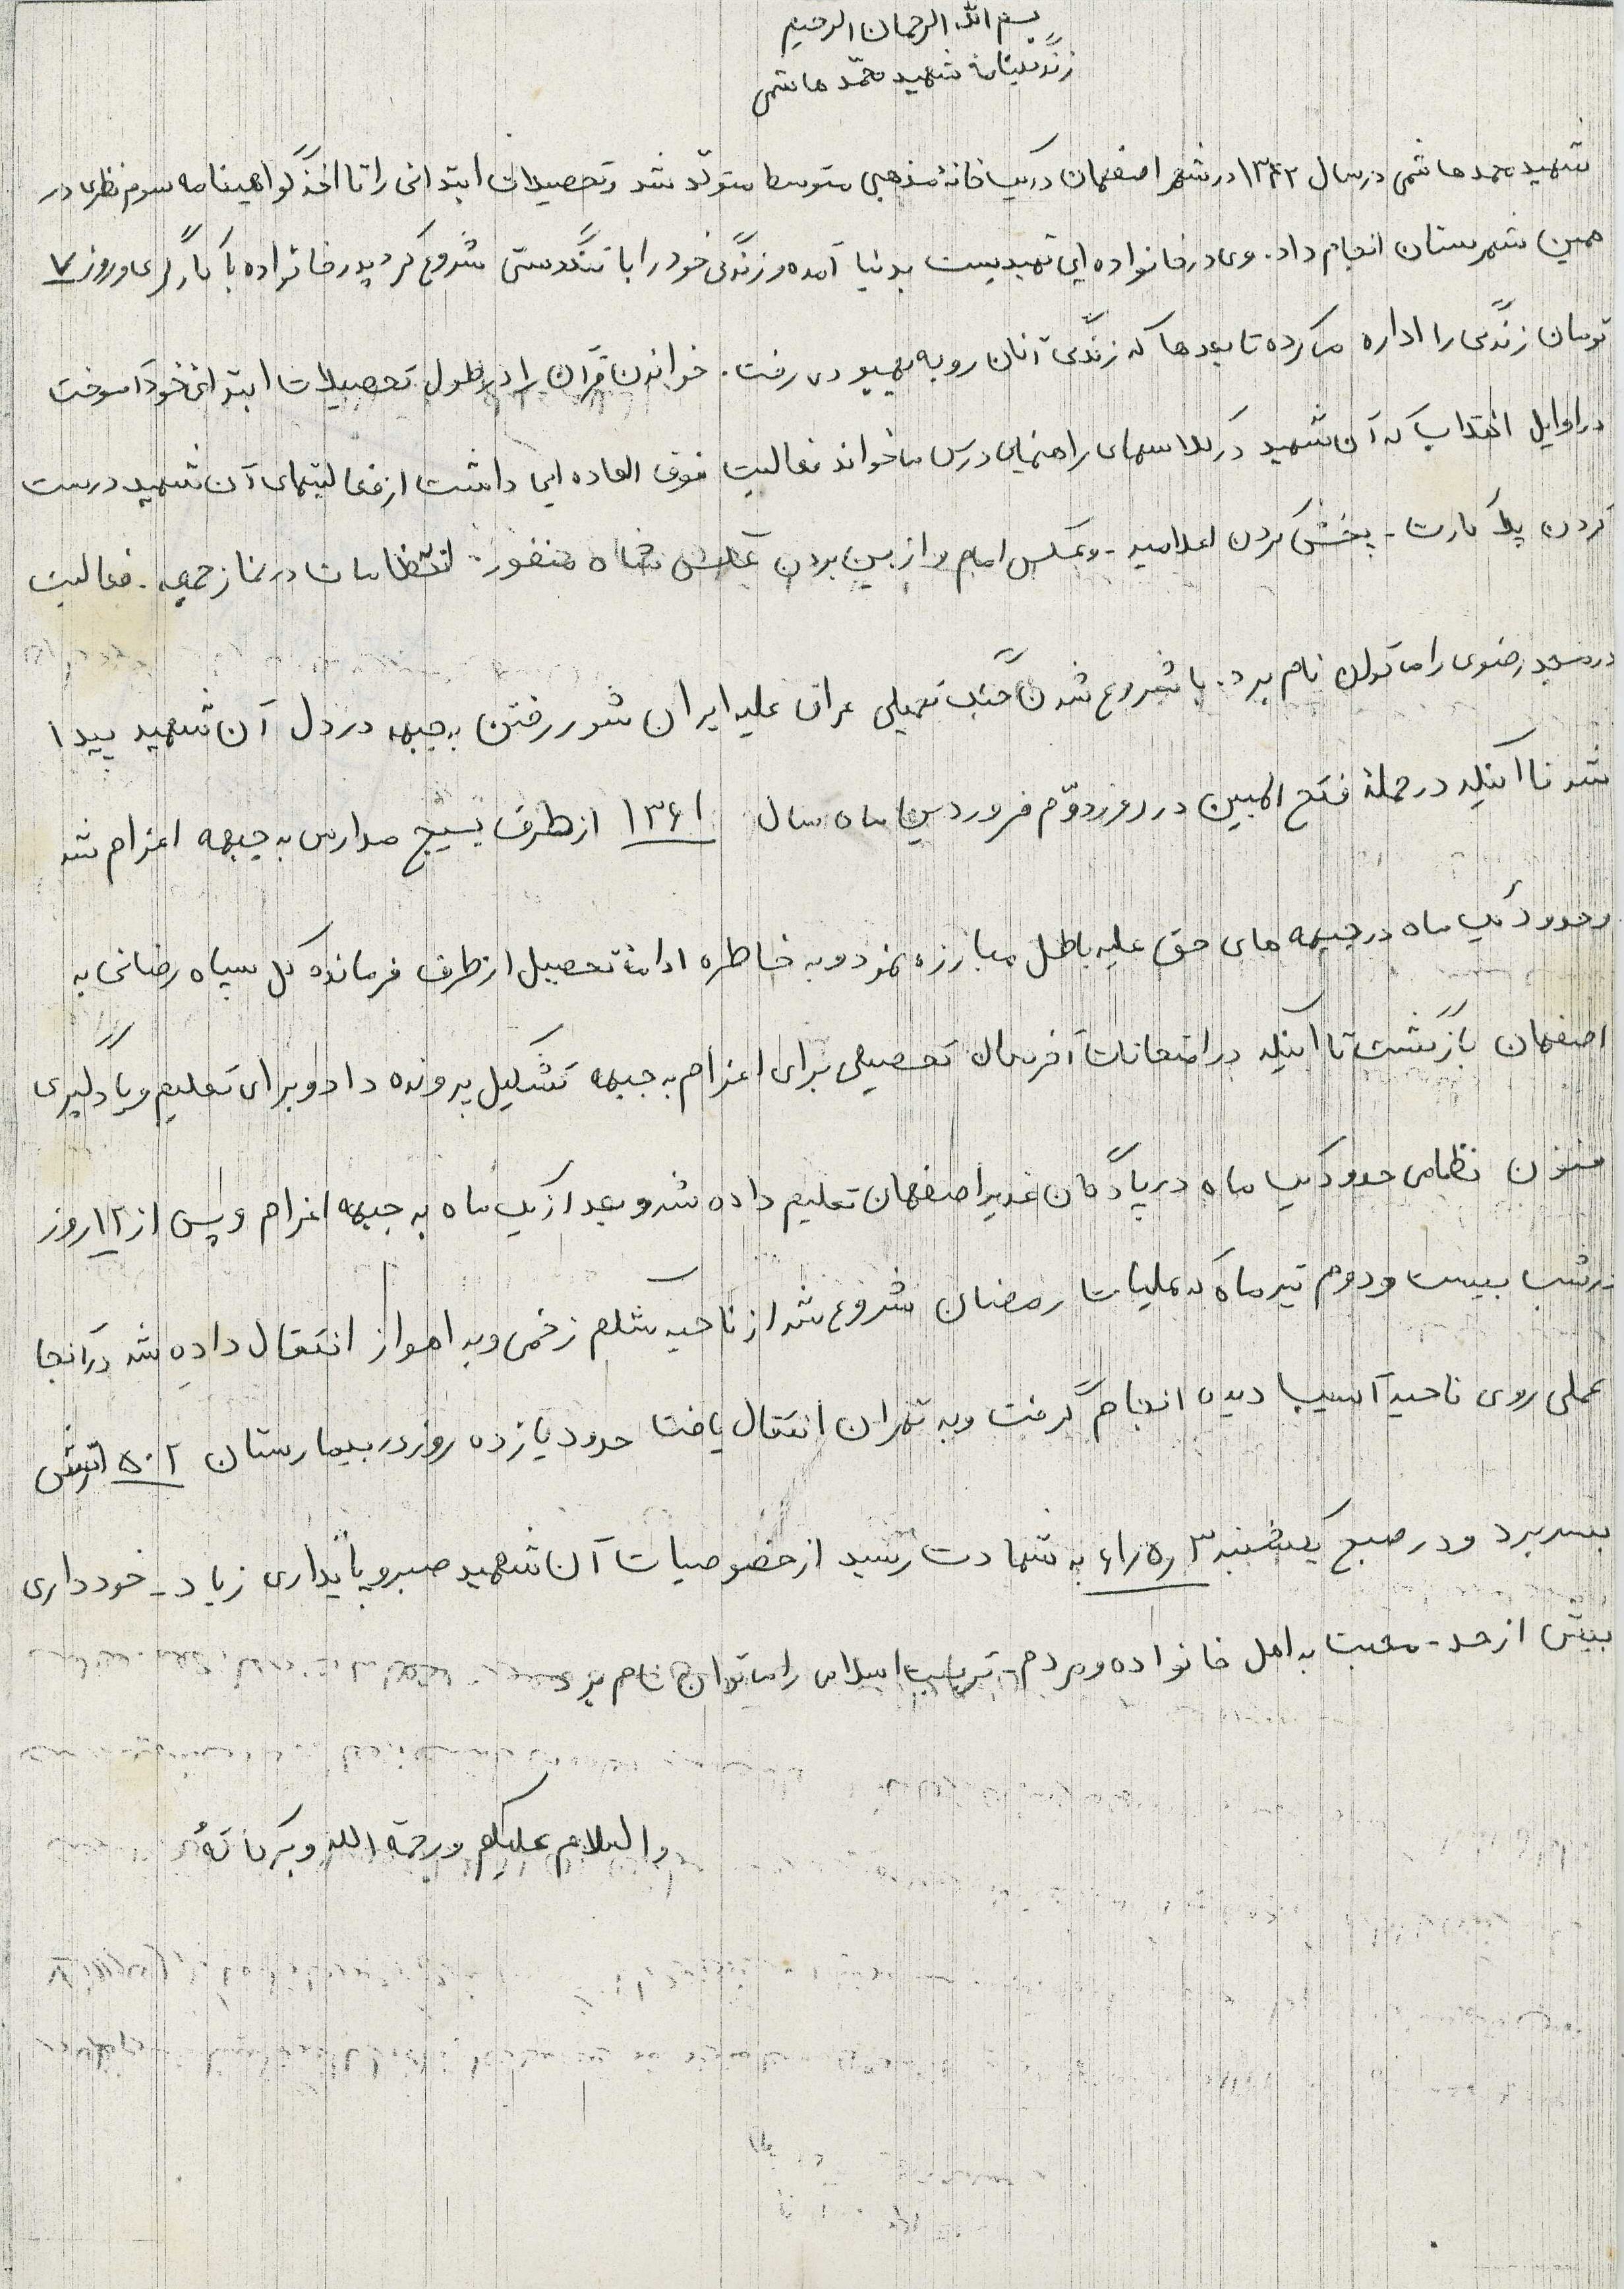 بسم الله الرحمان الرحیم
زندگینامهٔ شهید محمّد هاشمی
شهید محمد هاشمی در سال ۱۳۴۲ در شهر اصفهان در یک خانهٔ مذهبی متوسط متولّد شد و تحصیلات ابتدائی را تا اخذ گواهینامه سوم نظری در
همین شهرستان انجام داد. وی در خانواده ای تهیدست بدنیا آمده و زندگی خود را با تنگدستی شروع کرد پدر خانواده با کارگری و روزی ۷
تومان زندگی را اداره می کرده تا بعدها که زندگی آنان رو به بهبودی رفت. خواندن قرآن را در طول تحصیلات ابتدائی خود آموخت
در اوایل انقلاب که آن شهید در کلاسهای راهنمایی درس می خواند فعالیت فوق العاده ایی داشت از فعالیتهای آن شهید درست
کردن پلاکارت - پخش کردن اعلامیه - و عکس امام و از بین بردن عکس شاه منفور - انتظامات در نماز جمعه - فعالیت
در مسجد رضوی را می توان نام برد. با شروع شدن جنگ تحمیلی عراق علیه ایران شور رفتن به جبهه در دل آن شهید پیدا
شد تا اینکه در حملهٔ فتح المبین در روز دوّم فروردین ماه سال ۱۳۶۱ از طرف بسیج مدارس به جبهه اعزام شد
و حدود یک ماه در جبهه های حق علیه باطل مبارزه نمود و به خاطره ادامهٔ تحصیل از طرف فرمانده کل سپاه رضائی به
اصفهان بازگشت تا اینکه در امتحانات آخر سال تحصیلی برای اعزام به جبهه تشکیل پرونده داد و برای تعلیم و یادگیری
فنون نظامی حدود یک ماه در پادگان غدیر اصفهان تعلیم داده شد و بعد از یک ماه به جبهه اعزام و پس از ۱۲ روز
در شب بیست و دوم تیر ماه که عملیات رمضان شروع شد از ناحیه شکم زخمی و به اهواز انتقال داده شد در آنجا
عملی روی ناحیه آسیب دیده انجام گرفت و به تهران انتقال یافت حدود یازده روز در بیمارستان ۵۰۲ ارتش
بسر برد و در صبح یکشنبه ۳/۵/۶۱ به شهادت رسید از خصوصیات آن شهید صبر و پایداری زیاد - خودداری
بیش از حد - محبت به اهل خانواده و مردم - تربیت اسلامی را می توان نام برد
والسلام علیکم و رحمة الله و برکاتهُ